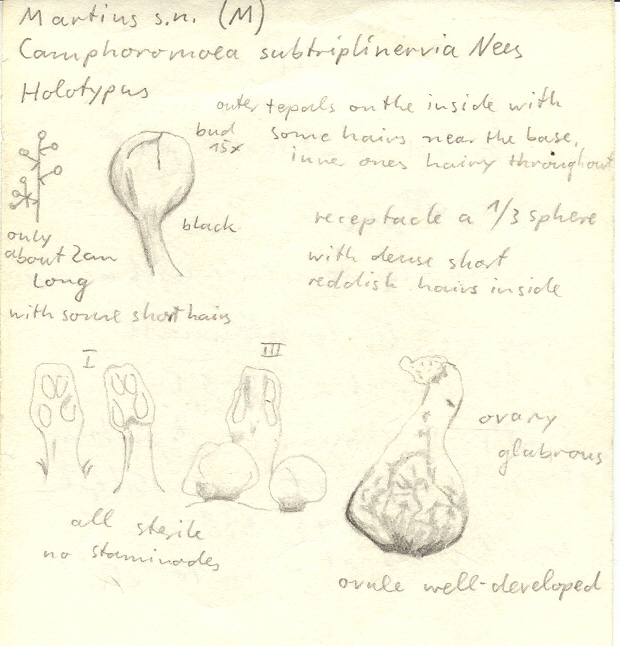 Martius s.n. (M)
Camphoromoea subtriplinervia Nees
Holotypus
outer tepals on the inside with
some hairs near the base,
inner ones hairy throughout
bud
15x
black
only
about 2cm
long
with some short hairs
receptacle a 1/3 sphere
with dense short
reddish hairs inside
I
III
all sterile
no staminodes
ovary
glabrous
ovule well-developed